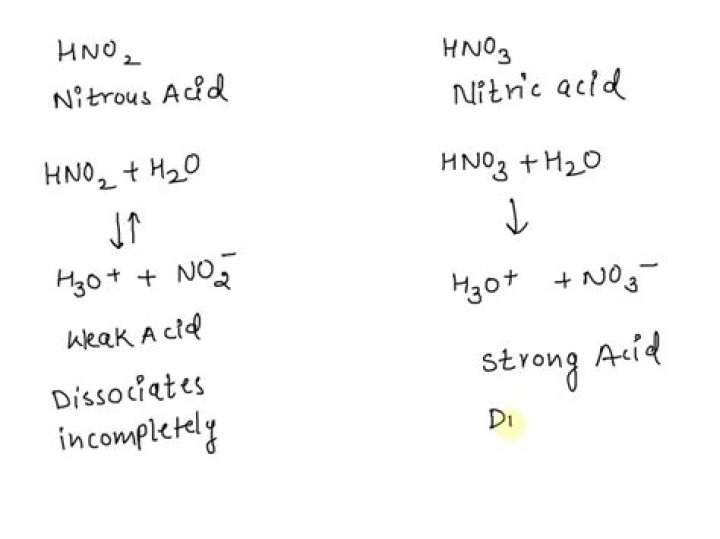 HNO₂
Nitrous Acid
HNO₂ + H₂O
⇓⇑
H₃O⁺ + NO₂⁻
Weak Acid
Dissociates
incompletely
HNO₃
Nitric acid
HNO₃ + H₂O
↓
H₃O⁺ + NO₃⁻
Strong Acid
Di